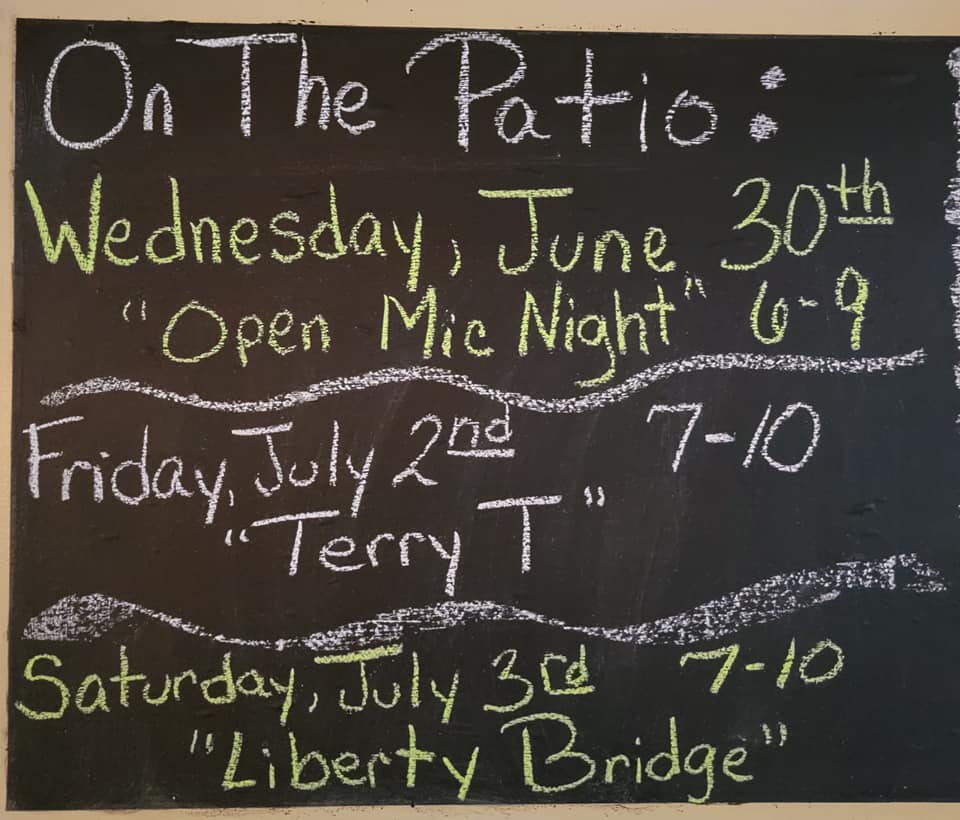 On The Patio:
Wednesday, June 30th
"Open Mic Night" 6-9
Friday, July 2nd 7-10
"Terry T"
Saturday, July 3rd 7-10
"Liberty Bridge"